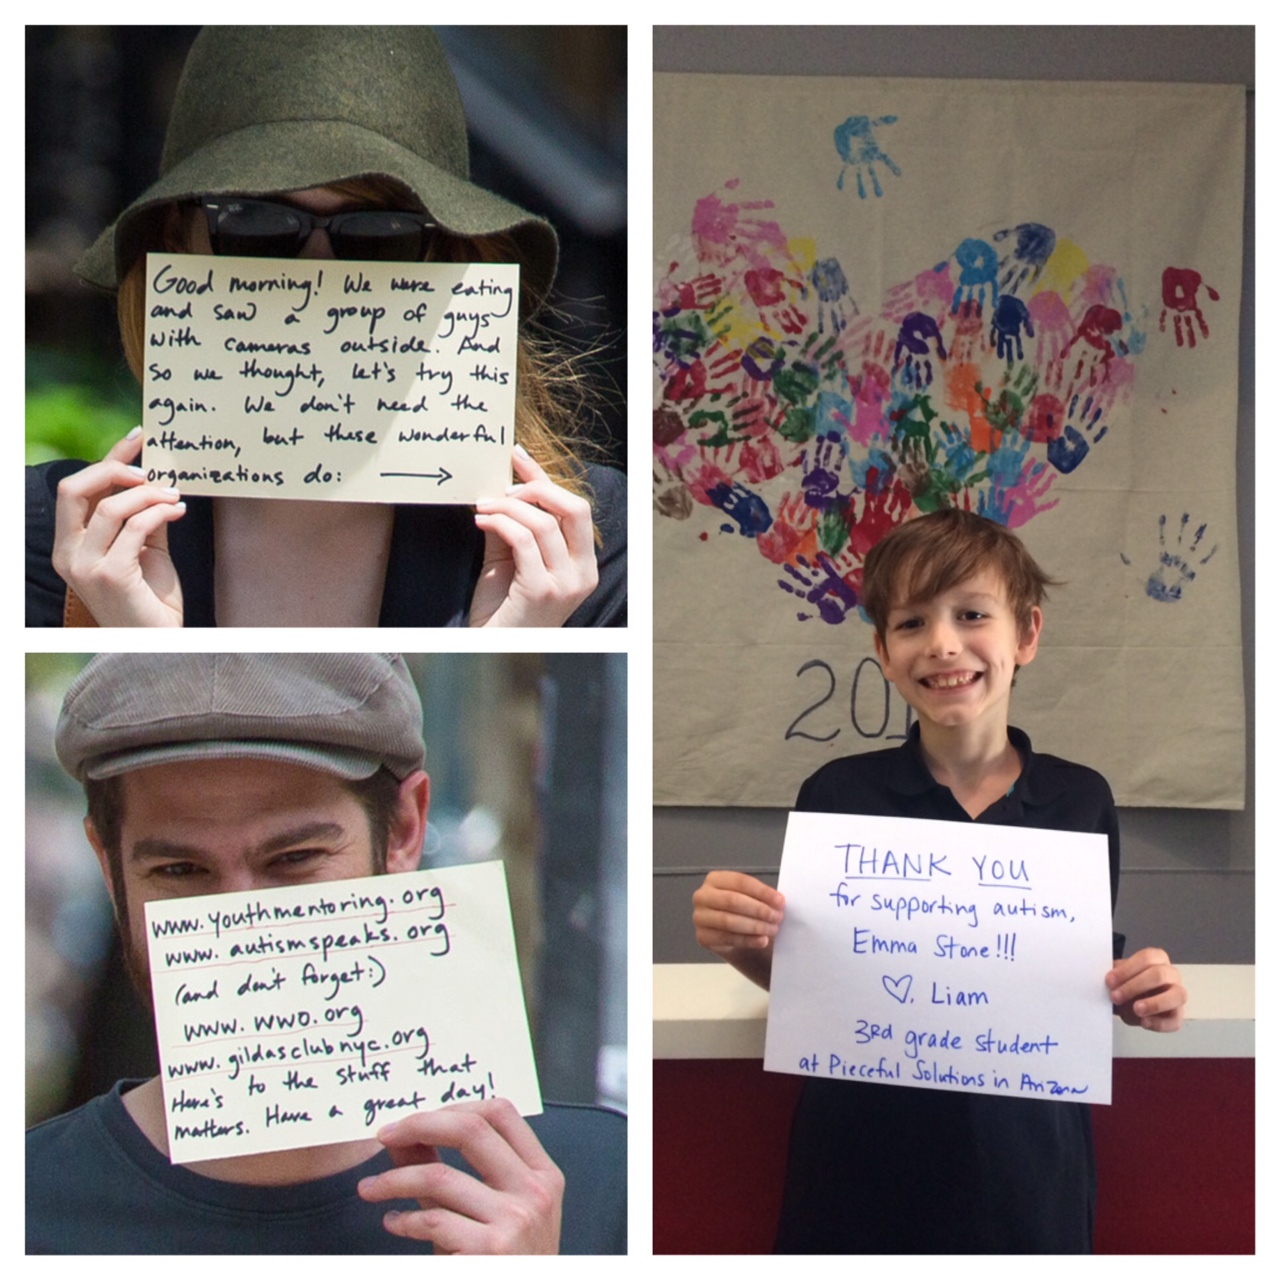 Good morning! We were eating
and saw a group of guys
with cameras outside. And
so we thought, let's try this
again. We don't need the
attention, but these wonderful
organizations do: →
www.youthmentoring.org
www.autismspeaks.org
(and don't forget:)
www.wwo.org
www.gildasclubnyc.org
Here's to the stuff that
matters. Have a great day!
201
THANK YOU
for supporting autism,
Emma Stone!!!
♡, Liam
3rd grade student
at Pieceful Solutions in Arizona